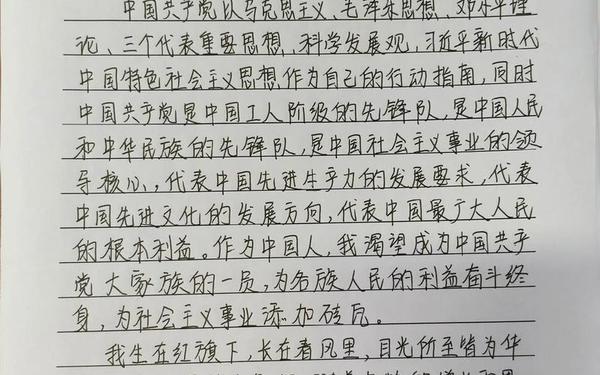 中国共产党以马克思主义、毛泽东思想、邓小平理
论、三个代表重要思想、科学发展观,习近平新时代
中国特色社会主义思想作为自己的行动指南,同时
中国共产党是中国工人阶级的先锋队,是中国人民
和中华民族的先锋队,是中国社会主义事业的领
导核心,代表中国先进生产力的发展要求,代表
中国先进文化的发展方向,代表中国最广大人民
的根本利益。作为中国人,我渴望成为中国共产
党大家族的一员,为各族人民的利益奋斗终
身,为社会主义事业添加砖瓦。
我生在红旗下,长在春风里,目光所至皆为华